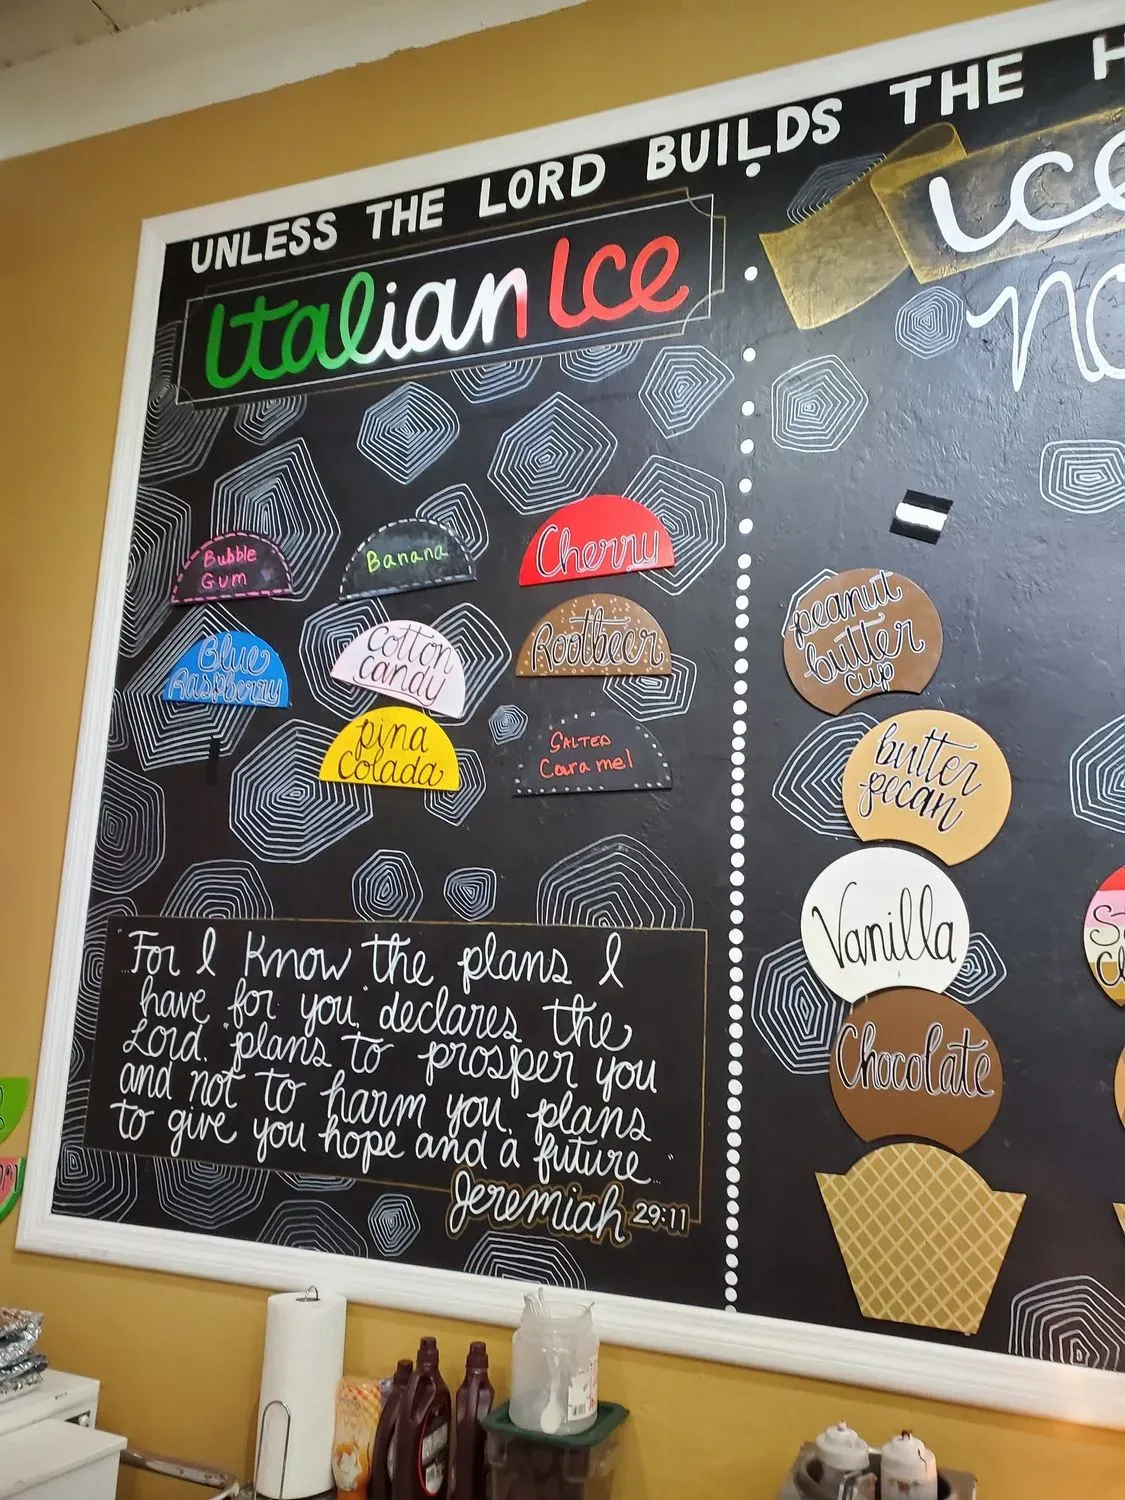 UNLESS THE LORD BUILDS THE H
Italian Ice
Bubble
Gum
Banana
Cherry
Blue
Raspberry
Cotton
Candy
Rootbeer
pina
Colada
Salted
Caramel
"For I know the plans I
have for you," declares the
Lord, "plans to prosper you
and not to harm you, plans
to give you hope and a future..."
Jeremiah 29:11
ice
no
peanut
butter
cup
butter
pecan
Vanilla
Chocolate